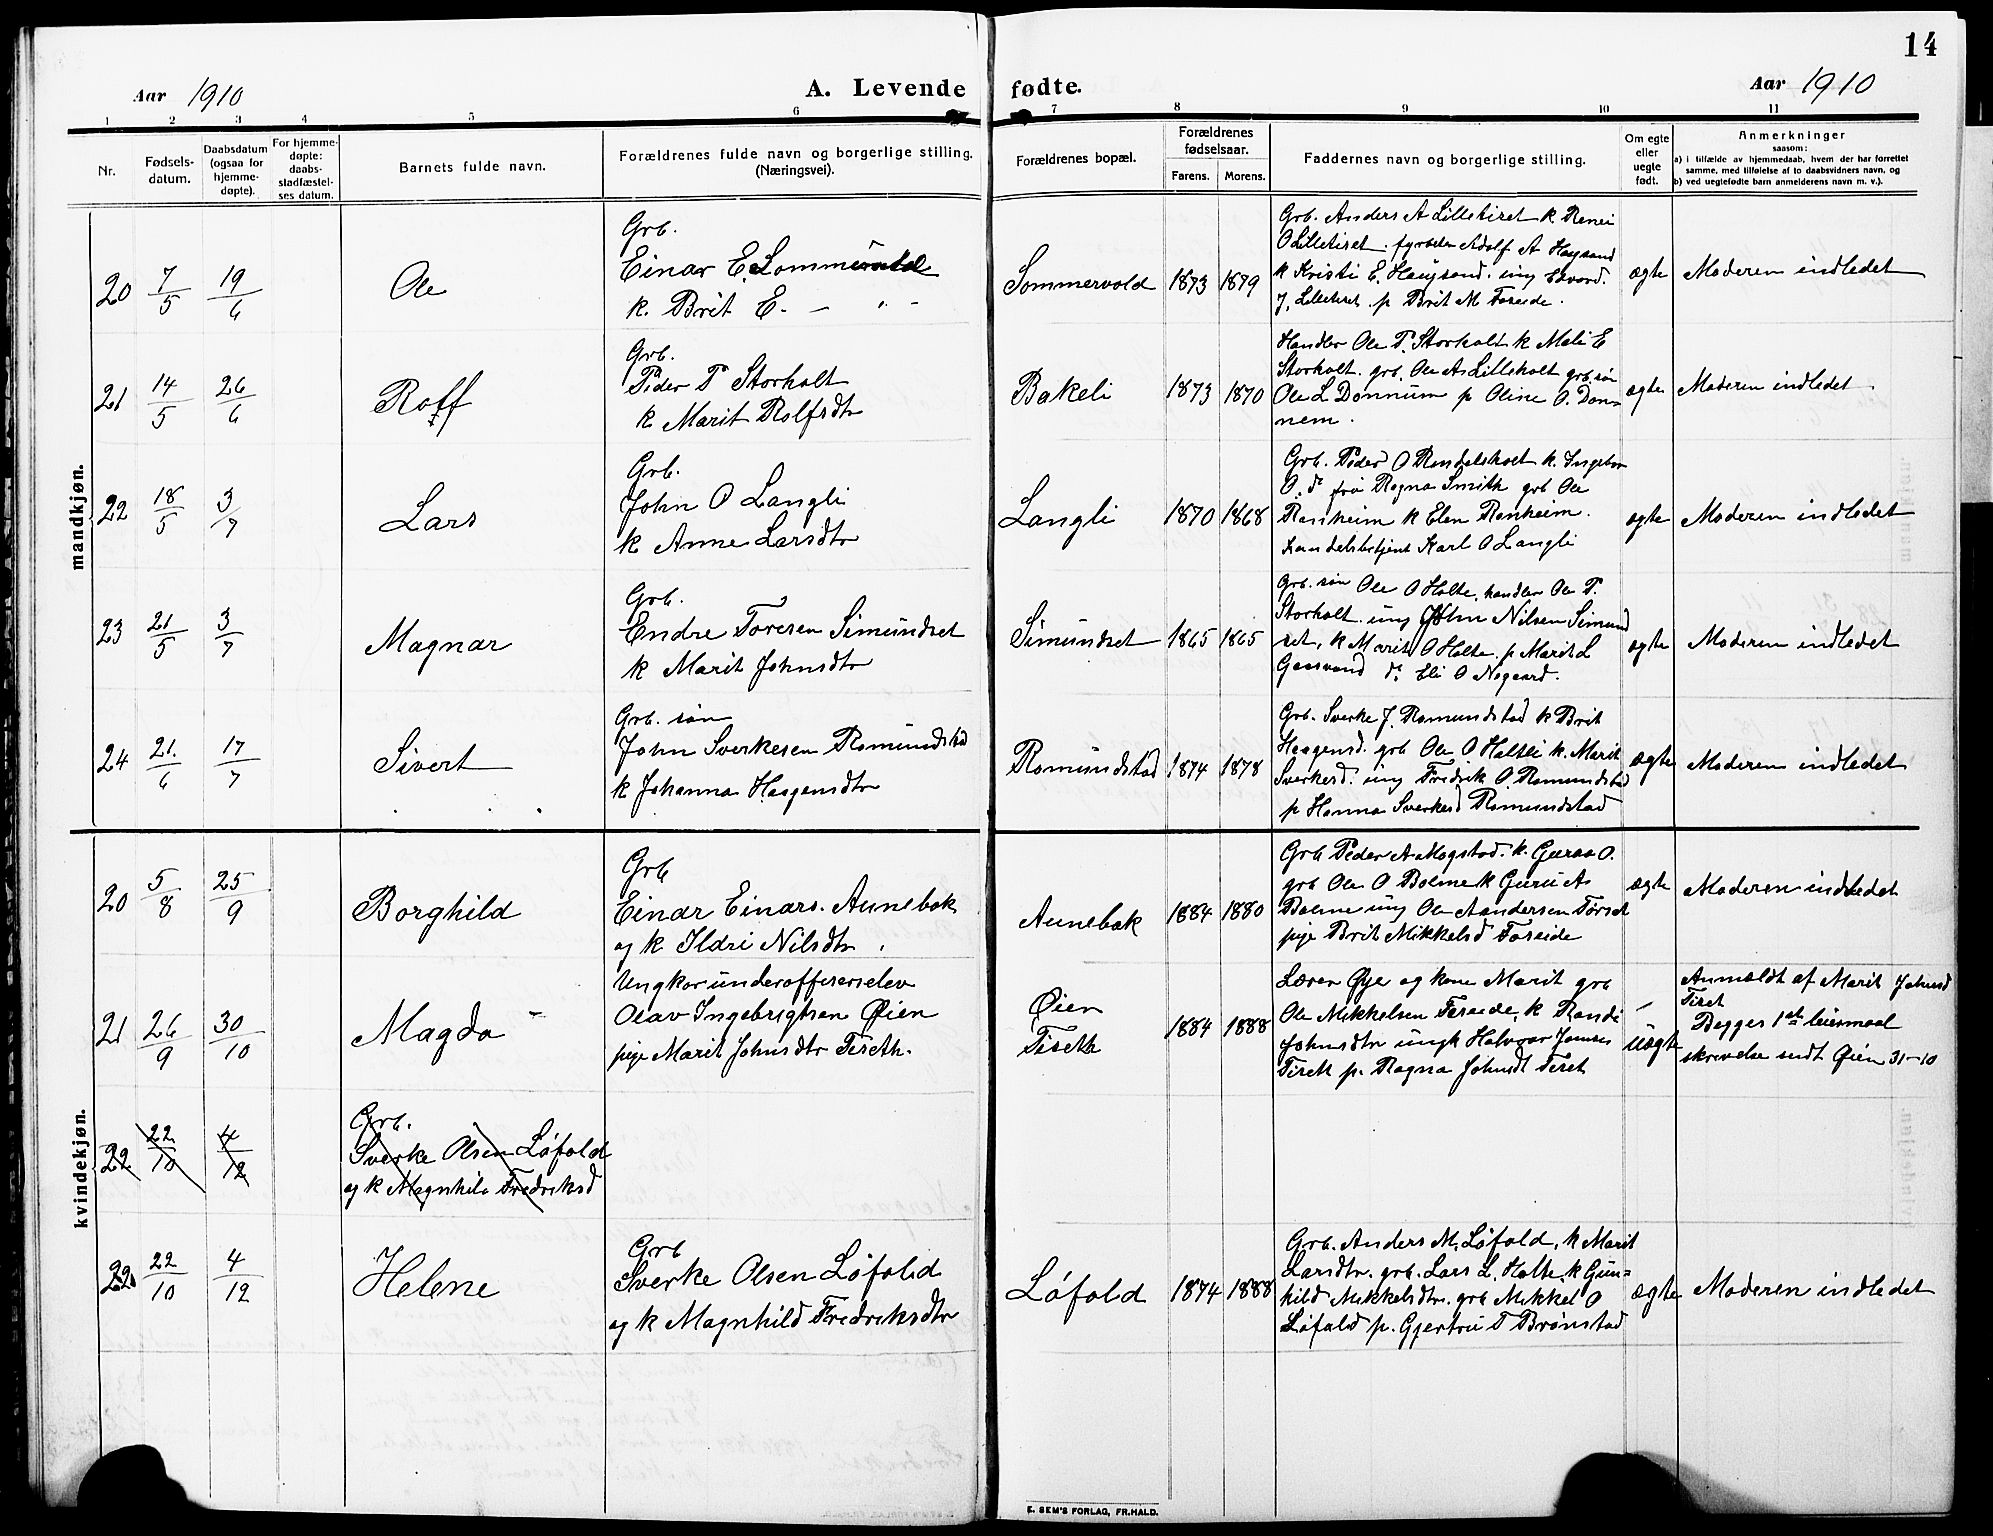 14
Aar 1910
A. Levende fødte.
Aar 1910
1 2 3 4 5 6 7 8 9 10 11
Nr.
Fødsels-
datum.
Daabsdatum
(ogsaa for
hjemme-
døpte).
For hjemme-
døpte:
daabs-
stadfæstel-
ses datum.
Barnets fulde navn.
Forældrenes fulde navn og borgerlige stilling.
(Næringsvei).
Forældrenes bopæl.
Forældrenes
fødselsaar.
Farens. Morens.
Faddernes navn og borgerlige stilling.
Om egte
eller
uegte
født.
Anmerkninger
saasom:
a) i tilfælde av hjemmedaab, hvem der har forrettet
samme, med tilføielse af to daabsvidners navn, og
b) ved uegtefødte barn anmelderens navn m. v.).
mandkjøn.
20 7/5 19/6 Ole
Grb.
Einar E. Sommervold
k. Brit E. — " -
Sommervold 1873 1879
Grb. Anders A Lilletiret k. Renei
O Lilletiret. fyrbøter Adolf A Haugsand
k Kristi E. Haugsand. ung Edvard.
J. Lilletiret p Brit M Foreide.
ægte Moderen indledet
21 14/5 26/6 Roff
Grb.
Peder P Storholt
k Marit Rolfsdtr
Bakeli 1873 1870
Handler Ole P. Storholt k Mali E
Storholt. grb. Ole A Lilleholt grb. søn
Ole L Donnum p Oline O. Don-
nem.
ægte Moderen indledet.
22 18/5 3/7 Lars
Grb.
John O Langli
k Anne Larsdtr
Langli 1870 1868
Grb. Peder O Rendalsholt k. Ingebor
O. do frø Ragna Smith grb Ole
Ranheim k Elen Ranheim.
handelsbetjent Karl O Langli
ægte Moderen indledet
23 21/5 3/7 Magnar
Grb.
Endre Toresen Simundset
k Marit Johnsdtr
Simundset 1865 1865
Grb. søn Ole O Holte, handler Ole P.
Storholt. ung John Nilsen Simund
set, k Marit O Holte. p Marit L
Gaasvand do Eli O Nogaard.
ægte Moderen indledet
24 21/6 17/7 Sivert
Grb. søn
John Sverkesen Romundstad
k Johanna Haagensdtr
Romundstad 1874 1878
Grb. Sverke J. Romundstad k Brit
Haagensd. grb Ole O Holtli k. Marit
Sverkesd. ung Fredrik O. Romundstad
p Hanna Sverkesd Romundstad
ægte Moderen indledet
kvindekjøn.
20 5/8 25/9 Borghild
Grb
Einar Einars. Aunebak
og k Ildri Nilsdtr.
Aunebak 1884 1880
Grb Peder A Mogstad. k. Guraa O.
grb Ole O Bolme k Guru As
Bolme ung Ole Aandersen Torset
pige Brit Mikkelsd Foreide
ægte Moderen indledet
21 26/9 30/10 Magda
Ungkar underofficerselev
Olav Ingebrigtsen Øien
pige Marit Johnsdtr Tireth.
Øien
Tireth
1884 1888
Lærer Øye og kone Marit grb
Ole Mikkelsen Foreide, k Randi
Johnsdtr ungk Halvor Jonsen
Tireth p. Ragna Johnsdt Tiret
uægte
Anmeldt af Marit Johnsd
Tiret
Begges 1ste leiermaal
skrivelse sendt Øien 31-10
22 22/10 4/12
Grb.
Sverke Olsen Løfald
og k Magnhild Fredriksd
22. 22/10 4/12 Helene
Grb
Sverke Olsen Løfald
og k Magnhild Fredriksdtr
Løfald 1874 1888
Grb. Anders M. Løfald, k Marit
Larsdtr. grb. Lars L. Holte, k Gun-
hild Mikkelsdtr. grb Mikkel O
Løfald p. Gjertru T Brønstad
ægte Moderen indledet
E. SEM'S FORLAG, FR.HALD.